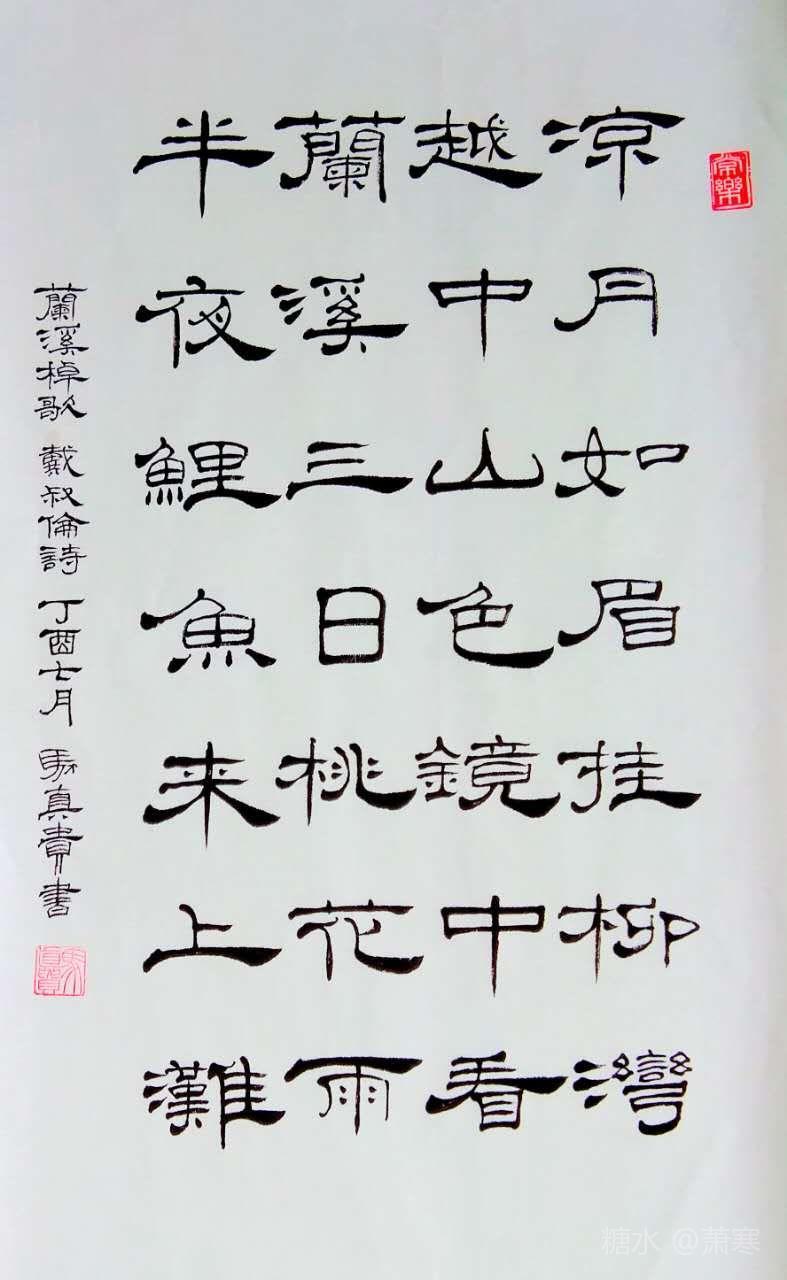 凉月如眉挂柳灣
越中山色鏡中看
蘭溪三日桃花雨
半夜鯉魚来上灘
蘭溪棹歌 戴叔倫詩 丁酉七月 馬真貴書
常樂
糖水 @萧寒